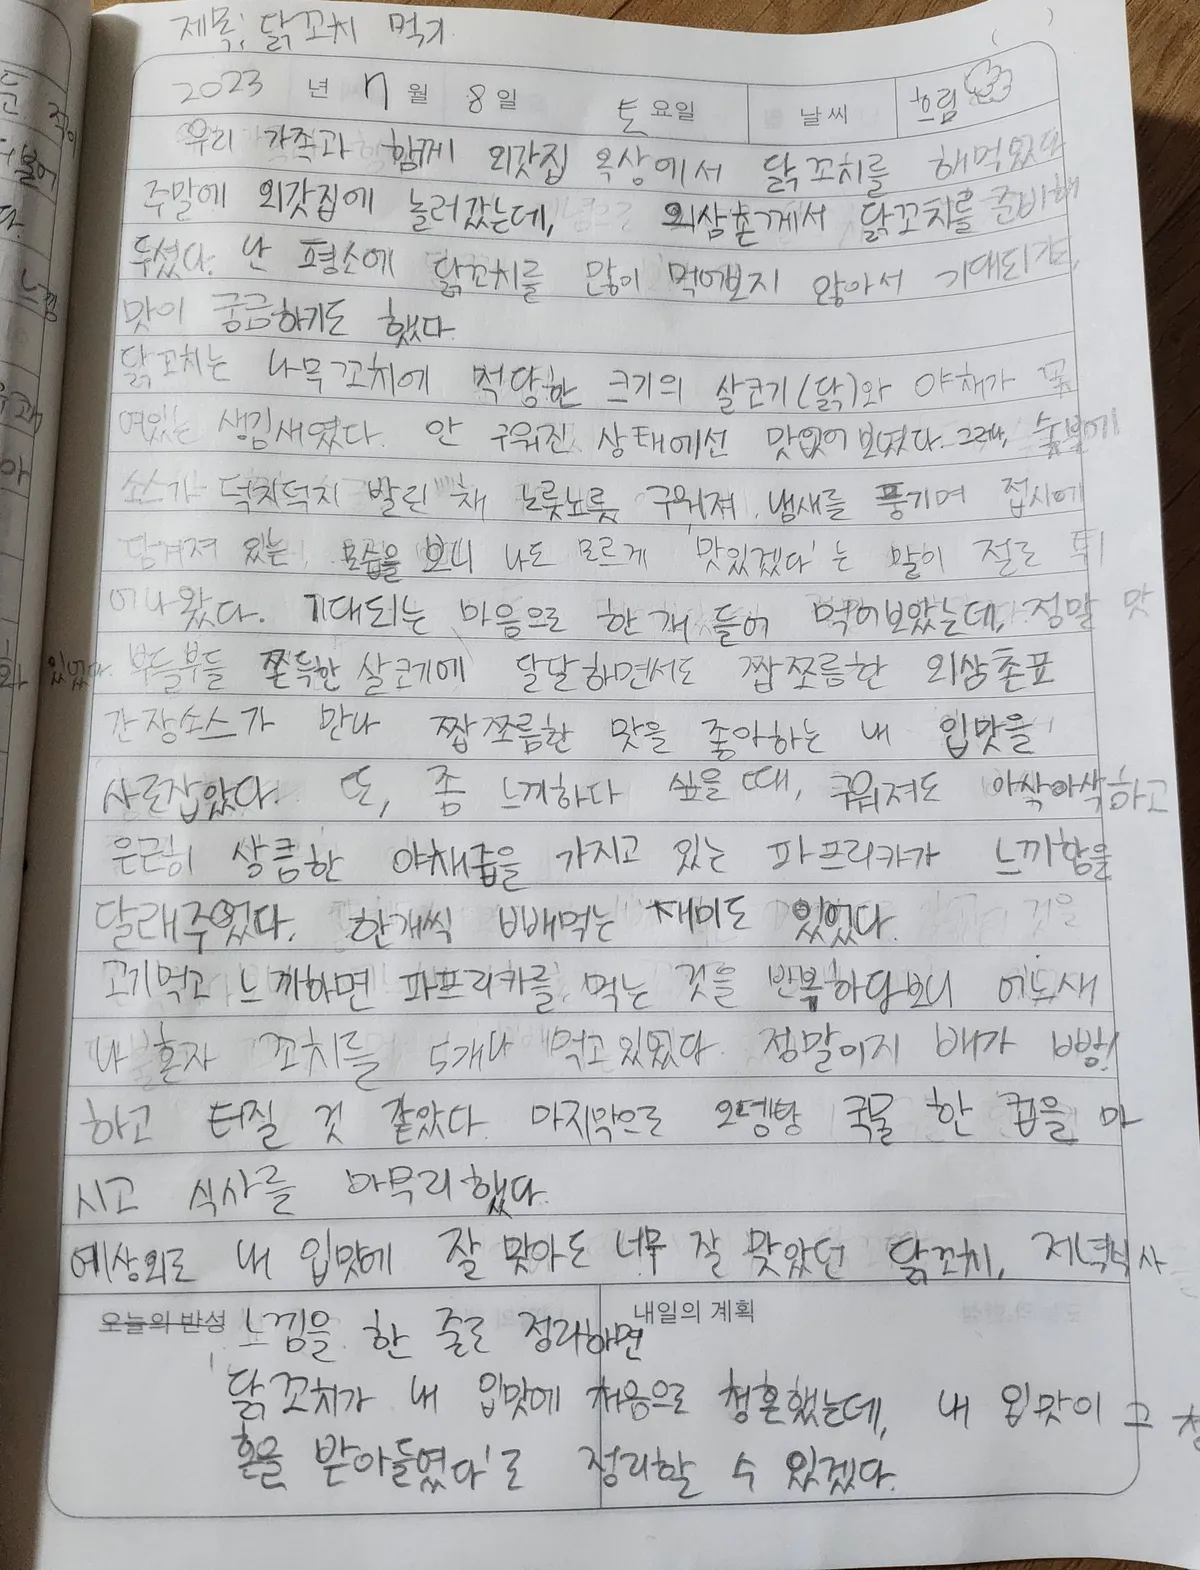 제목: 닭꼬치 먹기
2023 년 7 월 8 일 토 요일 날씨 흐림
우리 가족과 함께 외갓집 옥상에서 닭꼬치를 해먹었다
주말에 외갓집에 놀러갔는데, 외삼촌께서 닭꼬치를 준비해
두셨다. 난 평소에 닭꼬치를 많이 먹어보지 않아서 기대되기도,
맛이 궁금하기도 했다.
닭꼬치는 나무꼬치에 적당한 크기의 살코기(닭)와 야채가 꽂
여있는 생김새였다. 안 구워진 상태에선 맛없어보였다. 그러나, 숯불에
소스가 덕지덕지 발린 채 노릇노릇 구워져, 냄새를 풍기며 접시에
담겨져 있는, 모습을 보니 나도 모르게 '맛있겠다'는 말이 절로 튀
어나왔다. 기대되는 마음으로 한개 들어 먹어보았는데, 정말 맛
있었다. 부들부들 쫀득한 살코기에 달달해면서도 짭쪼름한 외삼촌표
간장소스가 만나 짭쪼름한 맛을 좋아하는 내 입맛을
사로잡았다. 또, 좀 느끼하다 싶을 때, 구워져도 아삭아삭하고
은근히 상큼한 야채즙을 가지고 있는 파프리카가 느끼함을
달래주었다. 한개씩 빼먹는 재미도 있었다.
고기먹고 느끼하면 파프리카를 먹는 것을 반복하답보니 어느새
나 혼자 꼬치를 5개나 먹고있었다. 정말이지 배가 빵!
하고 터질 것 같았다. 마지막으로 오뎅탕 국물 한 컵을 마
시고 식사를 마무리했다.
예상외로 내 입맛에 잘 맞아도 너무 잘 맞았던 닭꼬치, 저녁식사
오늘의 반성 느낌을 한 줄로 정리하면 내일의 계획
'닭꼬치가 내 입맛에 처음으로 청혼했는데, 내 입맛이 그 청
혼을 받아들였다'로 정리할 수 있겠다.